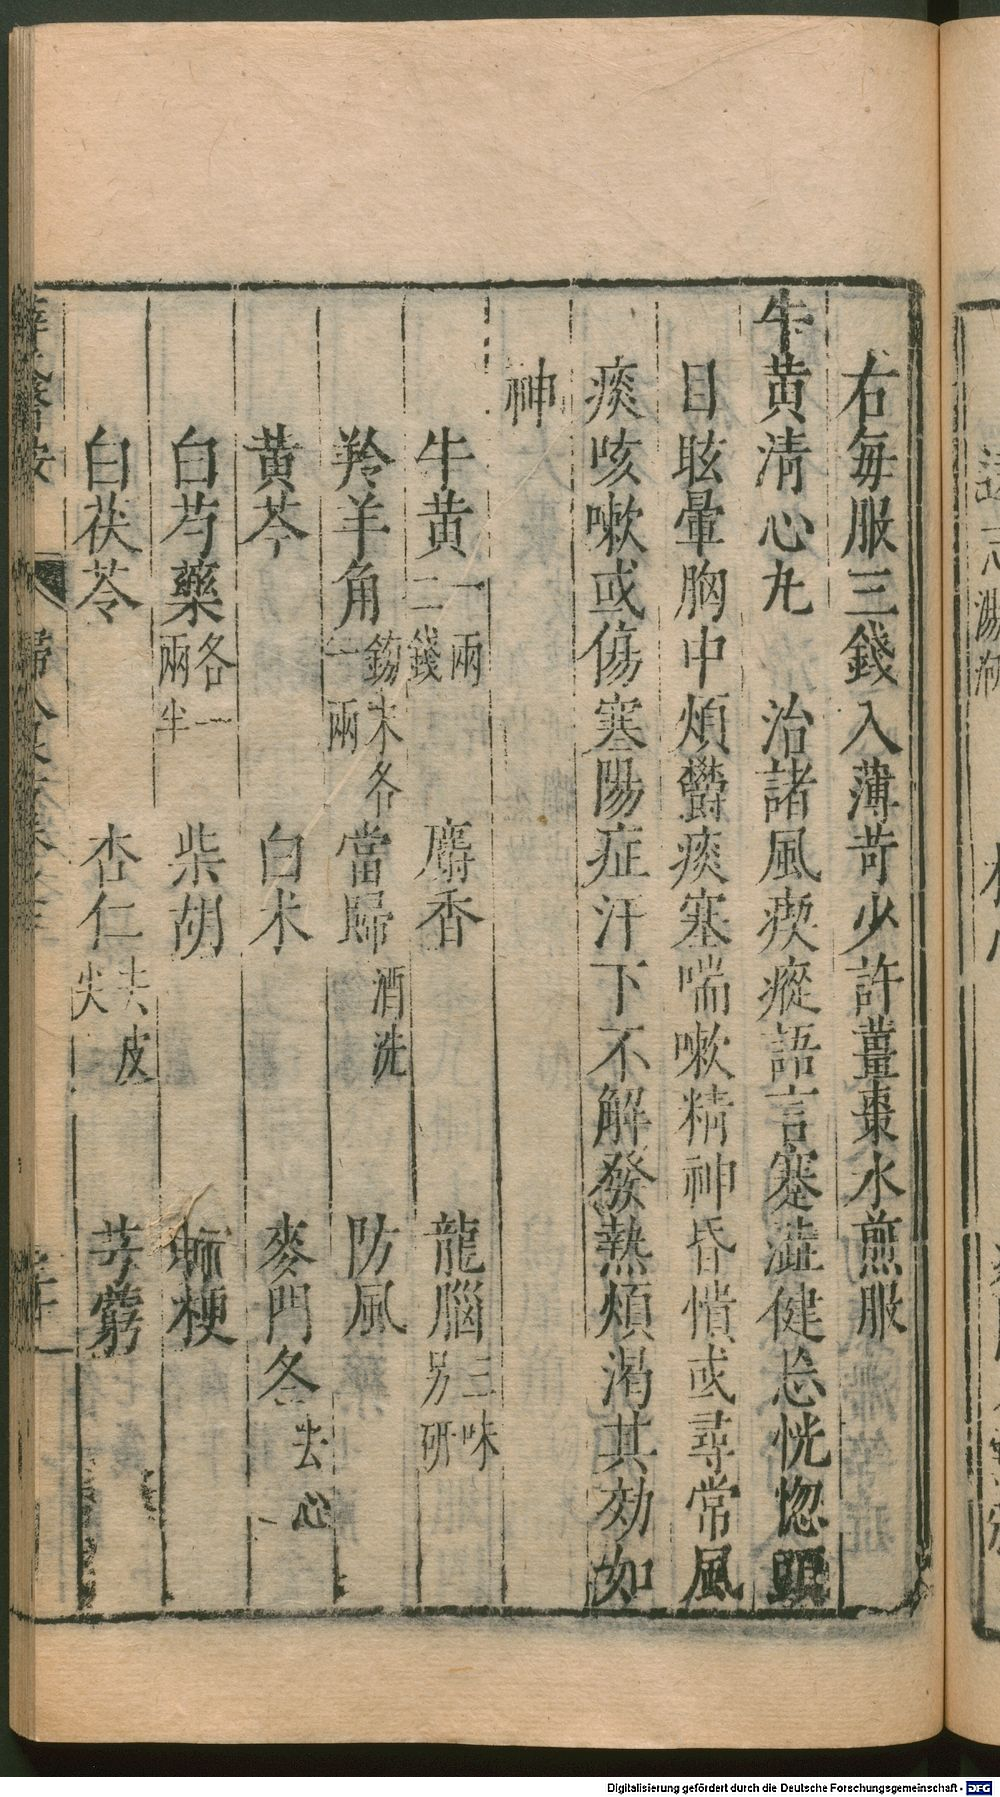 右每服三錢入薄苛少許薑棗水煎服
牛黄清心九　治諸風瘈瘲語言蹇澁健忘恍惚頭
目眩暈胸中煩鬱痰塞喘嗽精神昏憒或尋常風
痰咳嗽或傷寒陽症汗下不解發熱煩渴其効如
神
牛黄一兩二錢　麝香　龍腦三味另研
羚羊角鎊末各一兩　當歸酒洗　防風
黄芩　白术　麥門冬去心
白芍藥各一兩半　柴胡　梗
白茯苓　杏仁去皮尖　芎藭
Digitalisierung gefördert durch die Deutsche Forschungsgemeinschaft - DFG